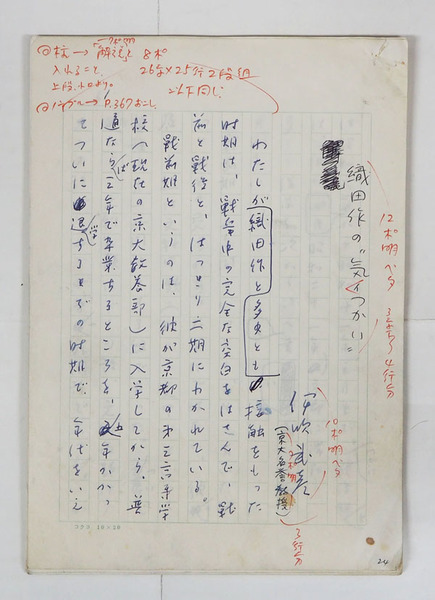 8ポ
26字×25行2段組
以下同じ
入れること
織田作の〝気づかい〟
12ポ明 ベタ 3字下ゲ 4行分
伊吹武彦
(京大名誉教授)
10ポ明ベタ
3行分
わたしが織田作と多少とも接触をもった
時期は、戦争中の完全な空白をはさんで、戦
前と戦後と、はっきり二期にわかれている。
戦前期というのは、彼が京都の第三高等学
校(現在の京大教養部)に入学してから、普
通なら三年で卒業するところを、五年かかっ
てついに退学するまでの時期で、年代をいえ
コクヨ 10×20
24